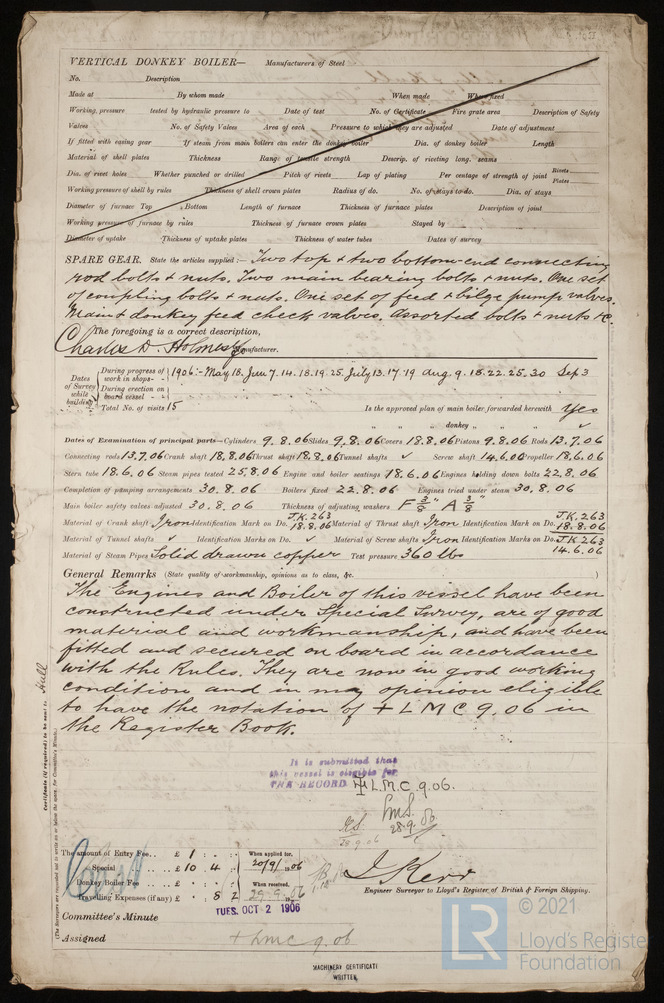 VERTICAL DONKEY BOILER— Manufacturers of Steel
No. Description
Made at By whom made When made Where fixed
Working pressure tested by hydraulic pressure to Date of test No. of Certificate Fire grate area Description of Safety
Valves No. of Safety Valves Area of each Pressure to which they are adjusted Date of adjustment
If fitted with easing gear If steam from main boilers can enter the donkey boiler Dia. of donkey boiler Length
Material of shell plates Thickness Range of tensile strength Descrip. of riveting long. seams
Dia. of rivet holes Whether punched or drilled Pitch of rivets Lap of plating Per centage of strength of joint Rivets Plates
Working pressure of shell by rules Thickness of shell crown plates Radius of do. No. of stays to do. Dia. of stays
Diameter of furnace Top Bottom Length of furnace Thickness of furnace plates Description of joint
Working pressure of furnace by rules Thickness of furnace crown plates Stayed by
Diameter of uptake Thickness of uptake plates Thickness of water tubes Dates of survey
SPARE GEAR. State the articles supplied:— Two top & two bottom end connecting
rod bolts & nuts. Two main bearing bolts & nuts. One set
of coupling bolts & nuts. One set of feed & bilge pump valves.
Main & donkey feed check valves. Assorted bolts & nuts &c.
The foregoing is a correct description,
Charles D. Holmes Manufacturer.
Dates of Survey while building
During progress of work in shops - - 1906:- May 18. Jun 7. 14. 18. 19. 25. July 13. 17. 19 Aug. 9. 18. 22. 25. 30 Sep 3
During erection on board vessel - -
Total No. of visits 15 Is the approved plan of main boiler forwarded herewith Yes
" " " donkey " " "
Dates of Examination of principal parts—Cylinders 9.8.06 Slides 9.8.06 Covers 18.8.06 Pistons 9.8.06 Rods 13.7.06
Connecting rods 13.7.06 Crank shaft 18.8.06 Thrust shaft 18.8.06 Tunnel shafts ✓ Screw shaft 14.6.06 Propeller 18.6.06
Stern tube 18.6.06 Steam pipes tested 25.8.06 Engine and boiler seatings 18.6.06 Engines holding down bolts 22.8.06
Completion of pumping arrangements 30.8.06 Boilers fixed 22.8.06 Engines tried under steam 30.8.06
Main boiler safety valves adjusted 30.8.06 Thickness of adjusting washers F 3/8 A 3/8
Material of Crank shaft Iron Identification Mark on Do. J.K.263 18.8.06 Material of Thrust shaft Iron Identification Mark on Do. J.K.263 18.8.06
Material of Tunnel shafts ✓ Identification Marks on Do. ✓ Material of Screw shafts Iron Identification Marks on Do. J.K.263 14.6.06
Material of Steam Pipes Solid drawn copper Test pressure 360 lbs
General Remarks (State quality of workmanship, opinions as to class, &c. )
The Engines and Boiler of this vessel have been
constructed under Special Survey, are of good
material and workmanship, and have been
fitted and secured on board in accordance
with the Rules. They are now in good working
condition and in my opinion eligible
to have the notation of + L M C 9.06 in
the Register Book.
Certificate (if required) to be sent to Hull
(The Surveyors are requested not to write on or below the space for Committee's Minute.)
It is submitted that
this vessel is eligible for
THE RECORD + L.M.C. 9.06.
28.9.06
28.9.06
The amount of Entry Fee . . £ 1 : : When applied for,
Special . . £ 10 . 4 : 20/9/1906
Donkey Boiler Fee . . . £ : :
Travelling Expenses (if any) £ : 8 2 When received, 29.9.1906
J. Kerr
Engineer Surveyor to Lloyd's Register of British & Foreign Shipping.
TUES. OCT 2 1906
Committee's Minute
Assigned + LMC 9.06
MACHINERY CERTIFICATE
WRITTEN
LR © 2021
Lloyd's Register
Foundation